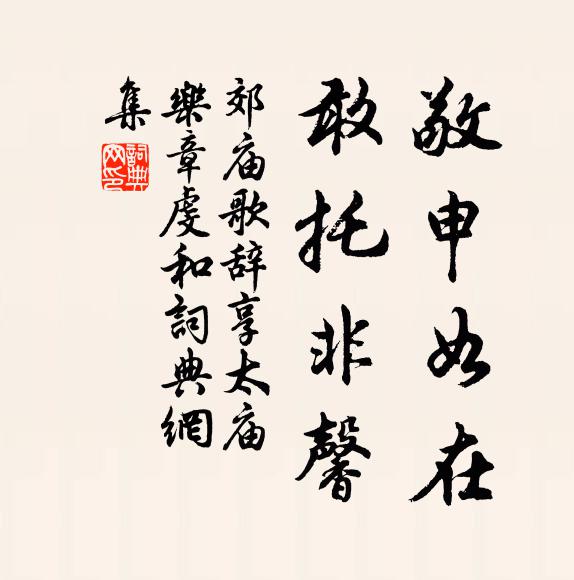 敬申如在
敢托非馨
郊庙歌辞享太庙
樂章虔和詞典網
集
詞典
网印